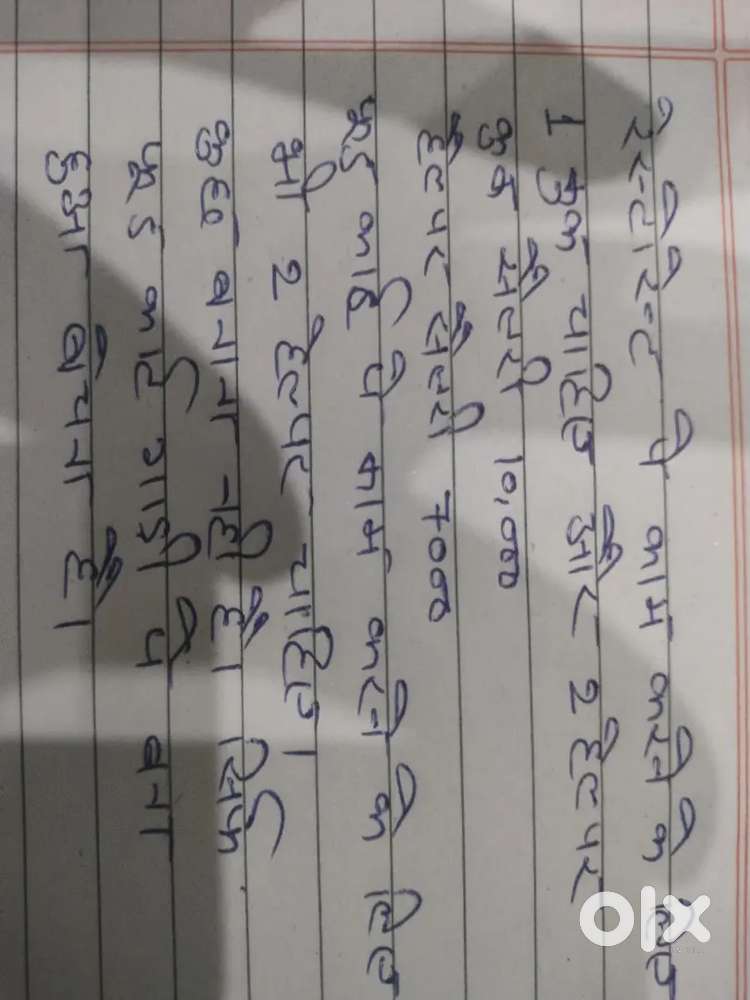 रेस्टोरेन्ट पे काम करने के लिए
1 कुक चाहिए और 2 हेल्पर
कुक सैलरी 10,000
हेल्पर सैलरी 7000
फूड कार्ट पे काम करने के लिए
भी 2 हेल्पर चाहिए।
कुछ बनाना नही है। सिर्फ
फूड कार्ट गाड़ी पे बना
हुआ बेचना है।
olx